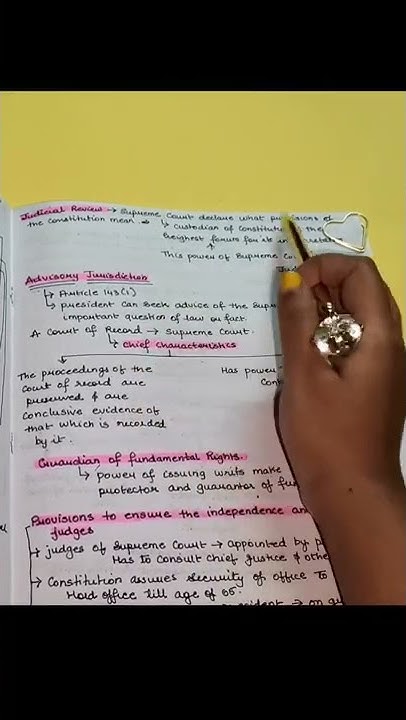 Judicial Review → Supreme Court declare what provisions of
the Constitution mean. →
↳ custodian of Constitut the
highest forum for its in
This power of Supreme Co
Advisory Jurisdiction
↳ Article 143(1)
↳ president can seek advice of the Supr
important question of law or fact.
A Court of Record → Supreme Court.
↳ Chief Characteristics
The proceedings of the
Court of record are
preserved & are
conclusive evidence of
that which is recorded
by it.
Has power
Con
Guardian of fundamental Rights.
↳ power of issuing writs make
protector and guarantor of fu
Provisions to ensure the independence an
judges
→ judges of Supreme Court → appointed by p
Has to consult Chief Justice & othe
→ Constitution assures security of office to
Hold office till age of 65.